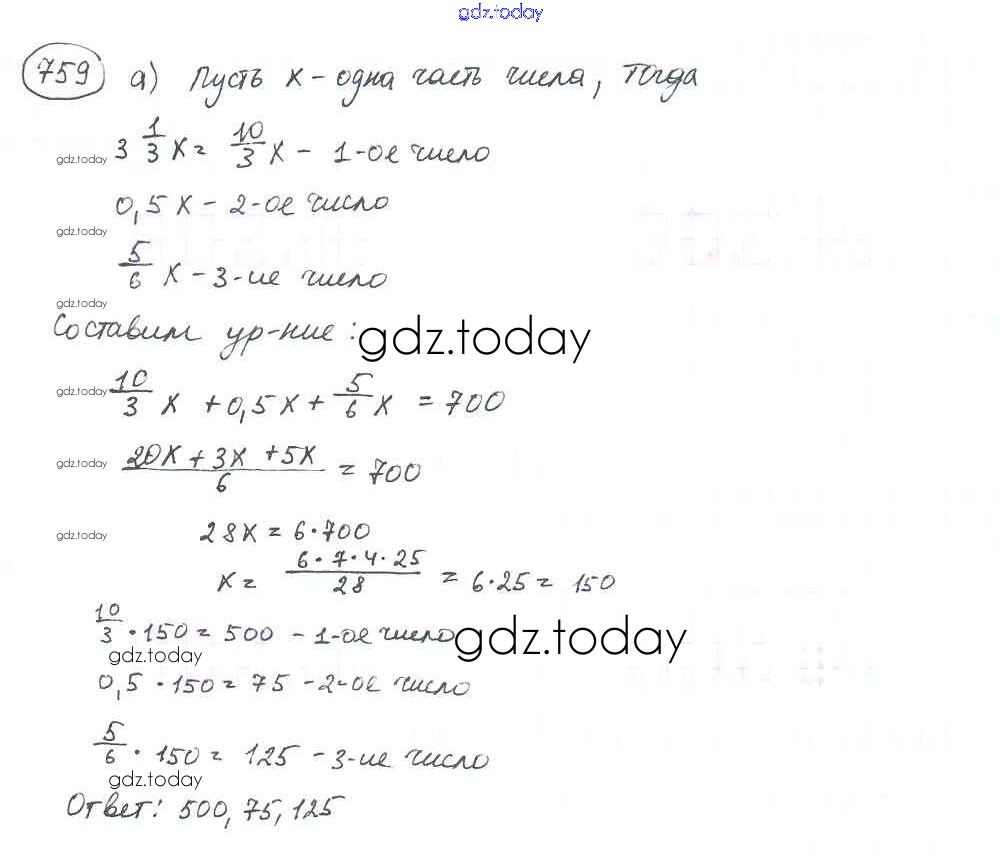 gdz.today
759 а) Пусть x - одна часть числа, тогда
gdz.today 3 1/3 x = 10/3 x - 1-ое число
0,5x - 2-ое число
gdz.today
5/6 x - 3-ие число
gdz.today
Составим ур-ние: gdz.today
gdz.today 10/3 x + 0,5x + 5/6 x = 700
gdz.today (20x + 3x + 5x)/6 = 700
gdz.today 28x = 6·700
x = (6·7·4·25)/28 = 6·25 = 150
10/3 · 150 = 500 - 1-ое число gdz.today
gdz.today
0,5 · 150 = 75 - 2-ое число
5/6 · 150 = 125 - 3-ие число
gdz.today
Ответ: 500, 75, 125